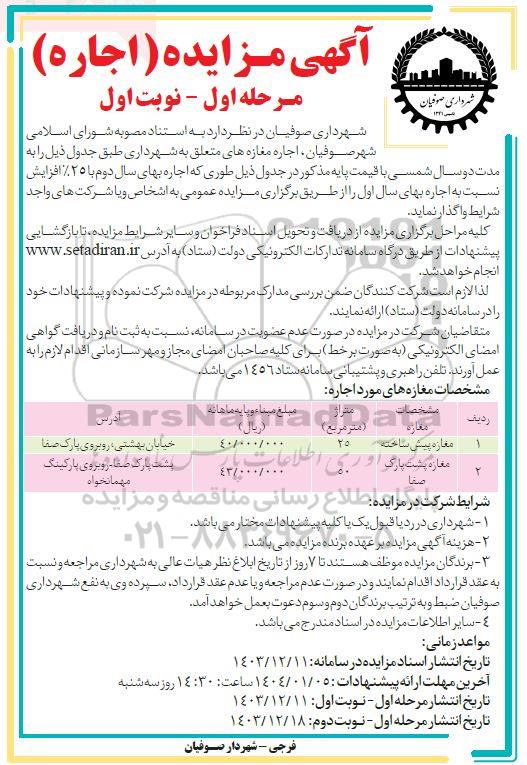 آگهی مـزایده (اجاره)
مـرحله اول - نوبت اول
شهرداری صوفیان
تاسیس ۱۳۳۱
شهـرداری صوفیـان در نظـر دارد بـه اسـتناد مصوبه شورای اسـلامی
شهر صـوفیان ، اجاره مغازه های متعلق به شهرداری طبق جدول ذیل را به
مدت دو سـال شمسـی با قیمت پایه مذکور در جدول ذیل طوری که اجاره بهای سال دوم با ۲۵٪ افزایش
نسبت به اجاره بهای سال اول را از طـریق برگزاری مـزایده عمومی به اشخاص و یا شرکت های واجد
شرایط واگذار نماید.
کلیه مراحل برگزاری مزایده از دریافت و تحویل اسناد فراخوان و سـایر شـرایط مزایده، تا بازگشایی
پیشنهادات از طریق درگاه سامانه تدارکات الکترونیکی دولت (ستاد) به آدرس www.setadiran.ir
انجام خواهد شد.
لذا لازم است شرکت کنندگان ضمن بررسی مدارک مربوطه در مزایده شرکت نموده و پیشنهادات خود
را در سامانه دولت (ستاد) ارائه نمایند.
متقاضیان شـرکت در مزایده در صورت عدم عضویت در سـامانه، نسـبت به ثبت نام و دریافت گواهی
امضای الکترونیکی (به صورت بر خط) بـرای کلیه صاحبان امضای مجاز و مهر سـازمانی اقدام لازم را به
عمل آورند. تلفن راهبری و پشتیبانی سامانه ستاد ۱۴۵۶ می باشد.
مشخصات مغازه های مورد اجاره:
ردیف مشخصات مغازه متراژ (متر مربع) مبلغ مبناء و پایه ماهانه (ریال) آدرس
۱ مغازه پیش ساخته ۲۵ ۴۰/۰۰۰/۰۰۰ خیابان بهشتی، روبروی پارک صفا
۲ مغازه پشت پارک صفا ۵۰ ۴۳/۰۰۰/۰۰۰ پشت پارک صفا- روبروی پارکینگ مهمانخواه
شرایط شرکت در مزایده:
۱- شهرداری در رد یا قبول یک یا کلیه پیشنهادات مختار می باشد.
۲- هزینه آگهی مزایده بر عهده برنده مزایده می باشد.
۳- برندگان مزایده موظف هسـتند تا ۷ روز از تاریخ ابلاغ نظر هیات عالی به شهرداری مراجعه و نسبت
به عقد قرارداد اقدام نمایند و در صورت عدم مراجعه و یا عدم عقد قرارداد، سپرده وی به نفع شهرداری
صوفیان ضبط و به ترتیب برندگان دوم و سوم دعوت بعمل خواهد آمد.
۴- سایر اطلاعات مزایده در اسناد مندرج می باشد.
مواعد زمانی:
تاریخ انتشار اسناد مزایده در سامانه: ۱۴۰۳/۱۲/۱۱
آخرین مهلت ارائه پیشنهادات : ۱۴۰۴/۰۱/۰۵ ساعت: ۱۴:۳۰ روز سه شنبه
تاریخ انتشار مرحله اول - نوبت اول: ۱۴۰۳/۱۲/۱۱
تاریخ انتشار مرحله اول - نوبت دوم: ۱۴۰۳/۱۲/۱۸
فرجی - شهردار صـوفیان
ParsNamadData
پایگاه اطلاع رسانی مناقصه و مزایده
۰۲۱-۸۸۳۴۹۶۷۰-۵